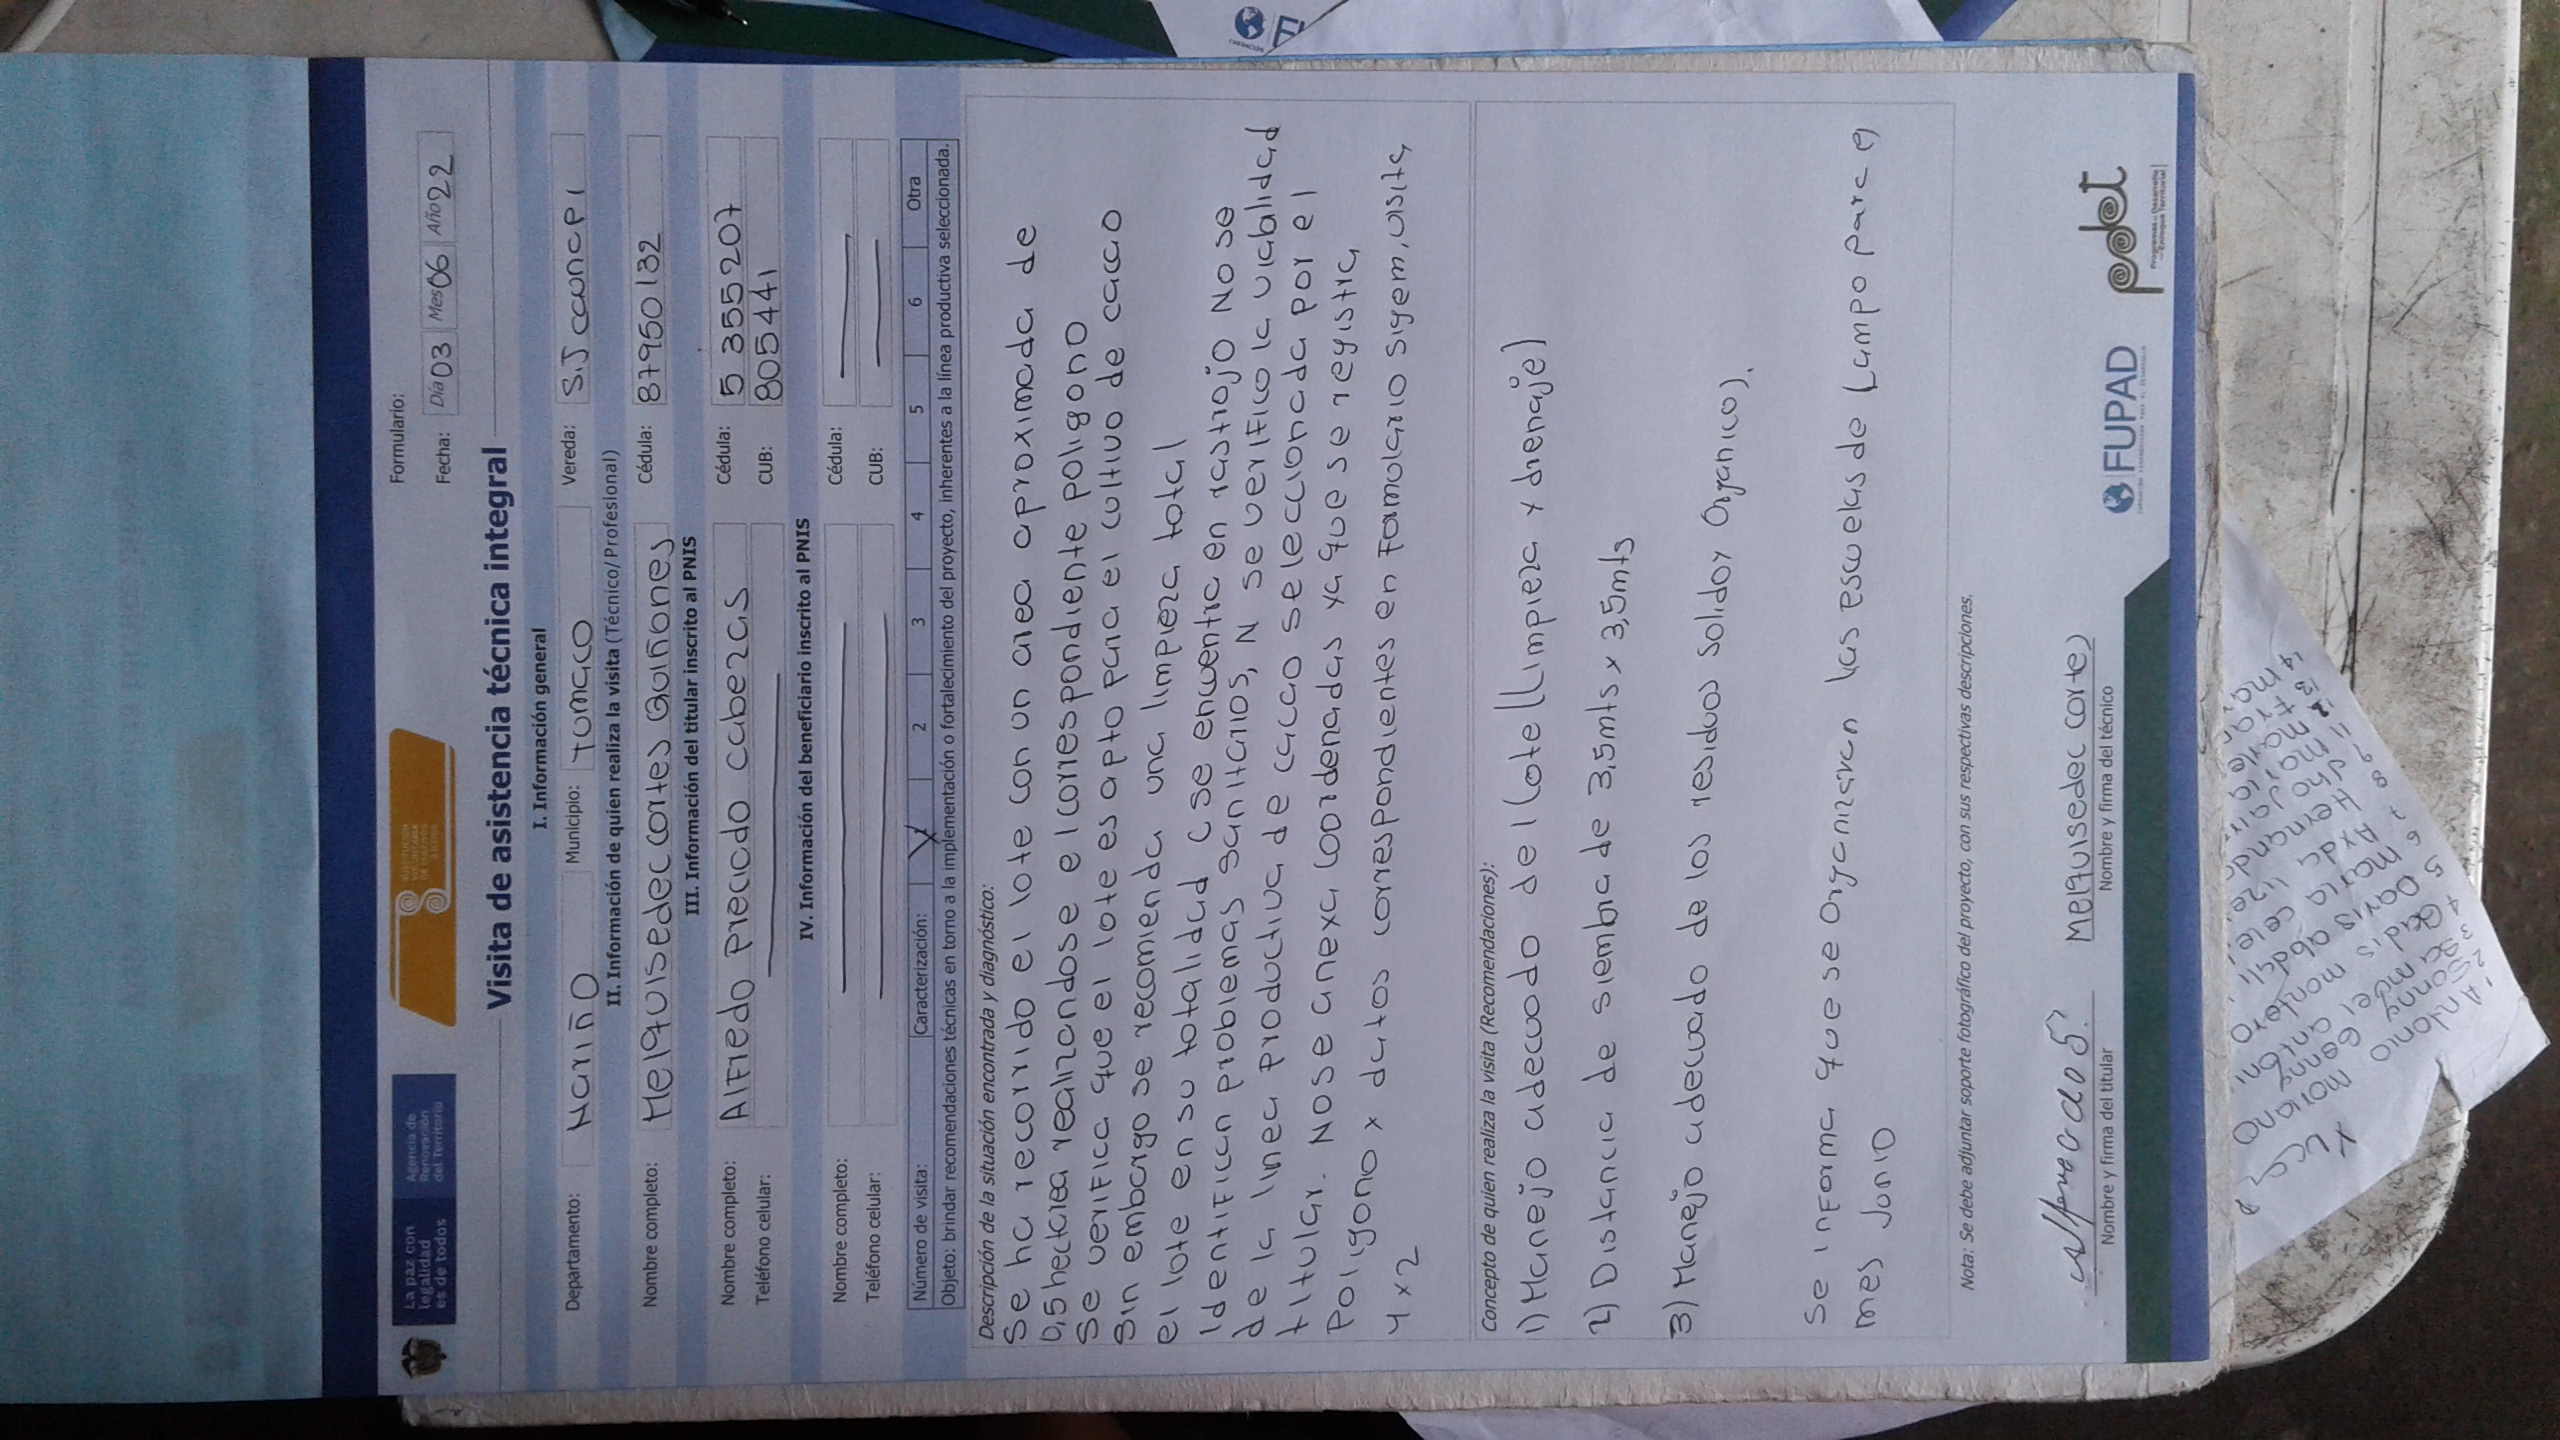 La paz con
legalidad
es de todos
Agencia de
Renovación
del Territorio
SUSTITUCIÓN
VOLUNTARIA
DE CULTIVOS
ILÍCITOS
Formulario:
Fecha: Día 03 Mes 06 Año 22
Visita de asistencia técnica integral
I. Información general
Departamento: Nariño Municipio: tumaco Vereda: S.J caonapi
II. Información de quien realiza la visita (Técnico/ Profesional)
Nombre completo: Melquisedec cortes Quiñones Cédula: 87950132
III. Información del titular inscrito al PNIS
Nombre completo: Alfredo Preciado cabezas Cédula: 5 355207
Teléfono celular: CUB: 805441
IV. Información del beneficiario inscrito al PNIS
Nombre completo: Cédula:
Teléfono celular: CUB:
Número de visita: Caracterización: X 2 3 4 5 6 Otra
Objeto: brindar recomendaciones técnicas en torno a la implementación o fortalecimiento del proyecto, inherentes a la línea productiva seleccionada.
Descripción de la situación encontrada y diagnóstico:
Se ha recorrido el lote con un area aproximada de
0,5 hectarea realizandose el correspondiente poligono
Se verifica que el lote es apto para el cultivo de cacao
Sin embargo se recomienda una limpieza total
el lote en su totalidad c se encuentra en rastrojo No se
identifican problemas sanitarios, N se verifico la viabilidad
de la linea productiva de cacao seleccionada por el
titular. No se anexa coordenadas ya que se registra
Poligono y datos correspondientes en Formulario sigem, visita
1 y 2
Concepto de quien realiza la visita (Recomendaciones):
1) Manejo adecuado del lote (Limpieza y drenaje)
2) Distancia de siembra de 3,5mts x 3,5mts
3) Manejo adecuado de los residuos solidos organico).
Se informa que se organizaran las escuelas de campo para el
mes Junio
Nota: Se debe adjuntar soporte fotográfico del proyecto, con sus respectivas descripciones.
Melquisedec corte)
Nombre y firma del titular Nombre y firma del técnico
FUPAD
pdet
Programas de Desarrollo
con Enfoque Territorial
1 Antonio moriano
2 Sonny
3 Samuel antoni
4 Gladis montero
5 Doris
6 maria cele
7 Ayda
8 Hernando
9 Jhojair
11 maria